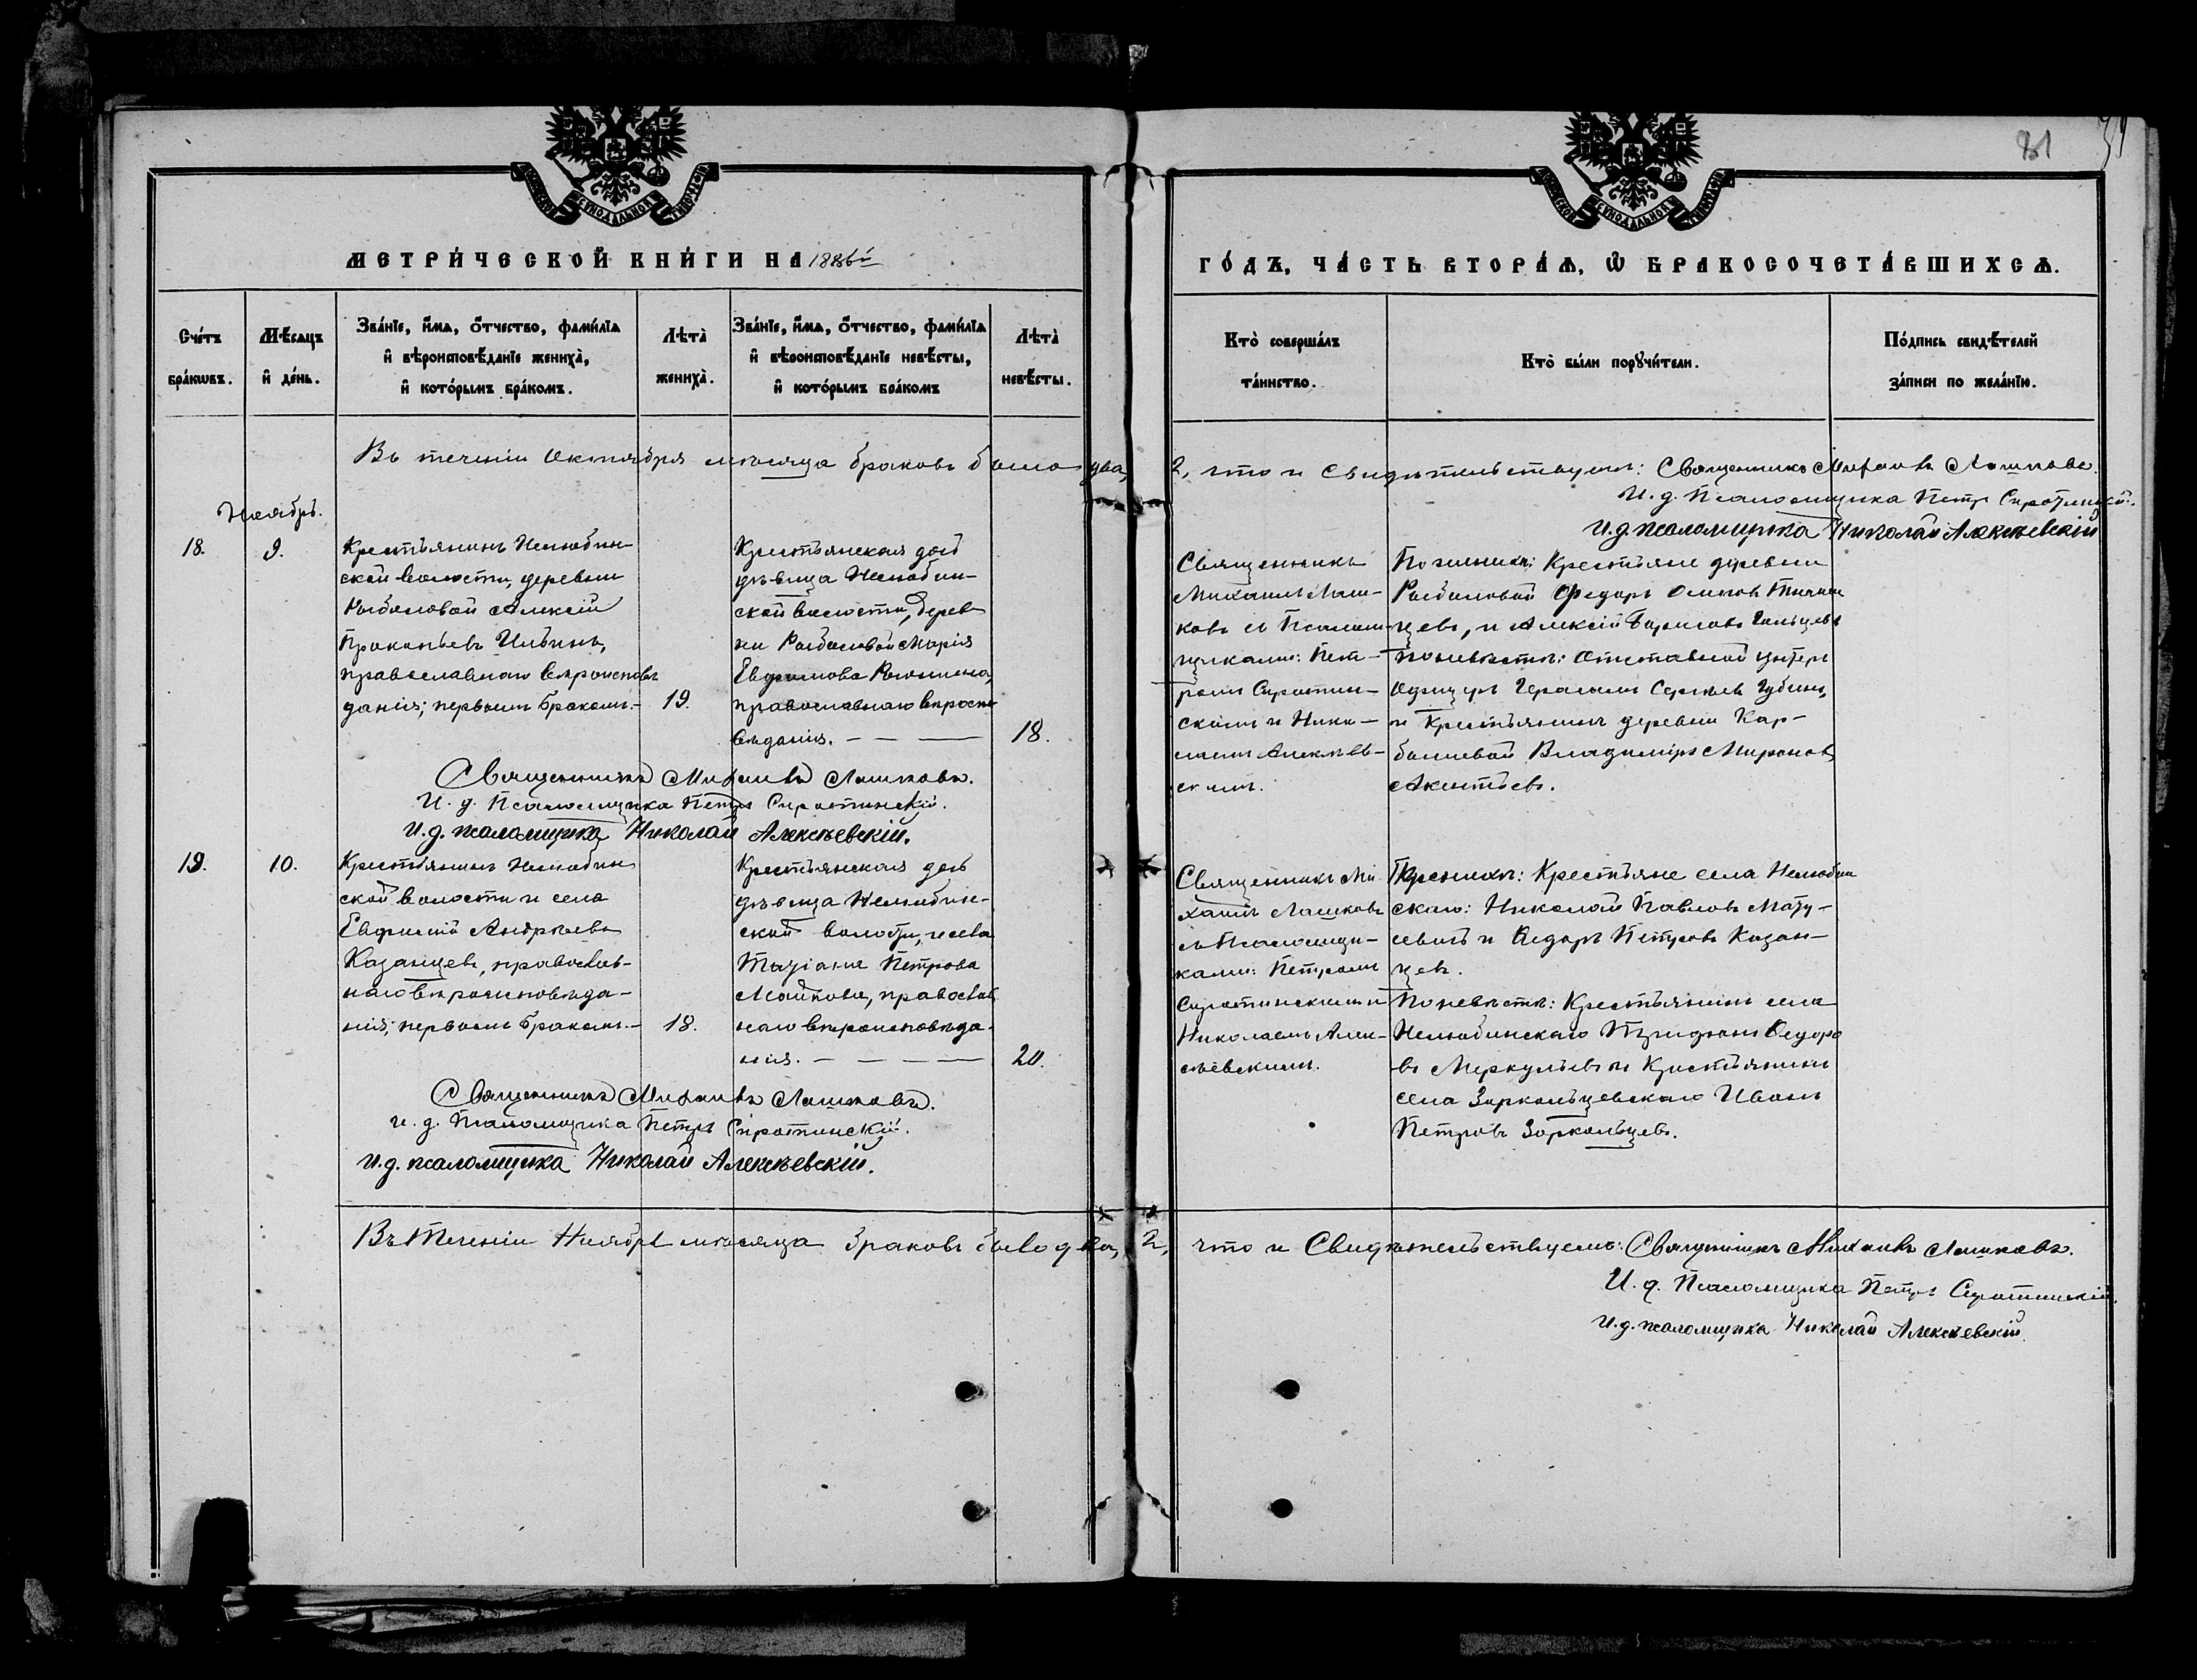 81
МЕТРИ́ЧЕСКОЙ КНИ́ГИ НА 1886й
ГО́ДЪ, ЧА́СТЬ ВТОРА́Ѧ, Ѽ БРАКОСОЧЕТА́ВШИХСѦ.
Сче́тъ бра́кѡвъ.
Мѣ́сѧцъ и де́нь.
Зва́нїе, и́мѧ, о́тчество, фами́лїѧ и вѣроисповѣ́данїе жениха̀, и кото́рымъ бра́комъ.
Лѣта̀ жениха̀.
Зва́нїе, и́мѧ, о́тчество, фами́лїѧ и вѣроисповѣ́данїе невѣ́сты, и кото́рымъ бра́комъ
Лѣта̀ невѣ́сты.
Кто̀ соверша́лъ та́инство.
Кто̀ бы́ли порꙋчи́тели.
По́дпись свидѣ́телей за́писи по жела́нїю.
Въ теченіи Октября мѣсяца браковъ было два, 2, что и свидѣтельствуемъ: Священникъ Михаилъ Лашковъ.
И. д. Псаломщика Петръ Сиротинскій.
И. д. псаломщика Николай Алексѣевскій
Ноябрь.
18.
9.
Крестьянинъ Нелюбин-
ской волости, деревни
Рыбаловой Алексій
Прокопьевъ Ильинъ,
православнаго вѣроисповѣ
данія; первымъ бракомъ.-
19.
Крестьянская дочь
дѣвица Нелюбин-
ской волости, дерев
ни Рыбаловой Марія
Евфимова
православнаго вѣроиспо
вѣданія. - - -
18.
Священникъ
Михаилъ Лаш-
ковъ съ Псалом-
щиками: Пет-
ромъ Сиротин-
скимъ и Нико-
лаемъ Алексѣев-
скимъ.
По женихѣ: Крестьяне деревни
Рыбаловой Федоръ Осиповъ
цевъ, и Алексій Борисовъ
По невѣстѣ: Отставной унтеръ
Офицеръ Герасимъ Сергѣевъ Губинъ,
и Крестьянинъ деревни Кар-
башевой Владиміръ Мироновъ
Акентьевъ.
Священникъ Михаилъ Лашковъ.
И. д. Псаломщика Петръ Сиротинскій.
И. д. псаломщика Николай Алексѣевскій.
19.
10.
Крестьянинъ Нелюбин
ской волости и села
Евфимій Андреевъ
Казанцевъ, православ-
наго вѣроисповѣда-
нія; первымъ бракомъ.-
18.
Крестьянская дочь
дѣвица Нелюбин-
ской волости, и села
Татіана Петрова
Майкова, православ
наго вѣроисповѣда-
нія. - - - -
20.
Священникъ Ми
хаилъ Лашковъ
съ Псаломщи-
ками: Петромъ
Сиротинскимъ и
Николаемъ Алек-
сѣевскимъ.
По женихѣ: Крестьяне села Нелюбин
скаго: Николай Павловъ Мату-
севичъ и Ѳедоръ Петровъ Казан-
цевъ.
По невѣстѣ: Крестьянинъ села
Нелюбинскаго Ѳедоро
въ Меркульевъ и Крестьянинъ
села Зоркальцевскаго Иванъ
Петровъ Зоркальцевъ.
Священникъ Михаилъ Лашковъ.
и. д. Псаломщика Петръ Сиротинскій.
И. д. псаломщика Николай Алексѣевскій.
Въ Теченіи Ноября мѣсяца браковъ было два, 2, что и Свидѣтельствуемъ: Священникъ Михаилъ Лашковъ.
И. д. Псаломщика Петръ Сиротинскій.
И. д. псаломщика Николай Алексѣевскій.